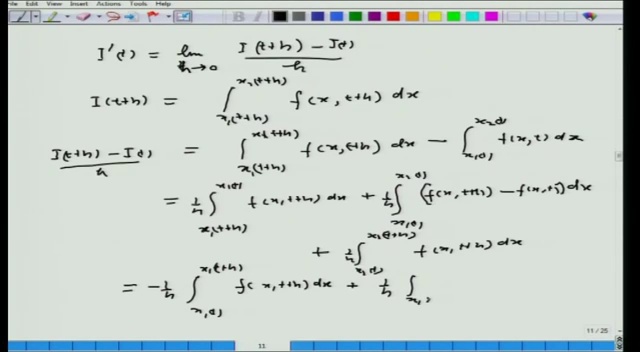 File Edit View Insert Actions Tools Help
I'(t) = lim h→0 I(t+h) − I(t) / h
I(t+h) = ∫_{x₁(t+h)}^{x₂(t+h)} f(x, t+h) dx
I(t+h) − I(t) / h = ∫_{x₁(t+h)}^{x₂(t+h)} f(x, t+h) dx − ∫_{x₁(t)}^{x₂(t)} f(x, t) dx
= 1/h ∫_{x₁(t+h)}^{x₁(t)} f(x, t+h) dx + 1/h ∫_{x₁(t)}^{x₂(t)} (f(x, t+h) − f(x, t)) dx
+ 1/h ∫_{x₂(t)}^{x₂(t+h)} f(x, t+h) dx
= − 1/h ∫_{x₁(t)}^{x₁(t+h)} f(x, t+h) dx + 1/h ∫_{x₁
11 / 25
11